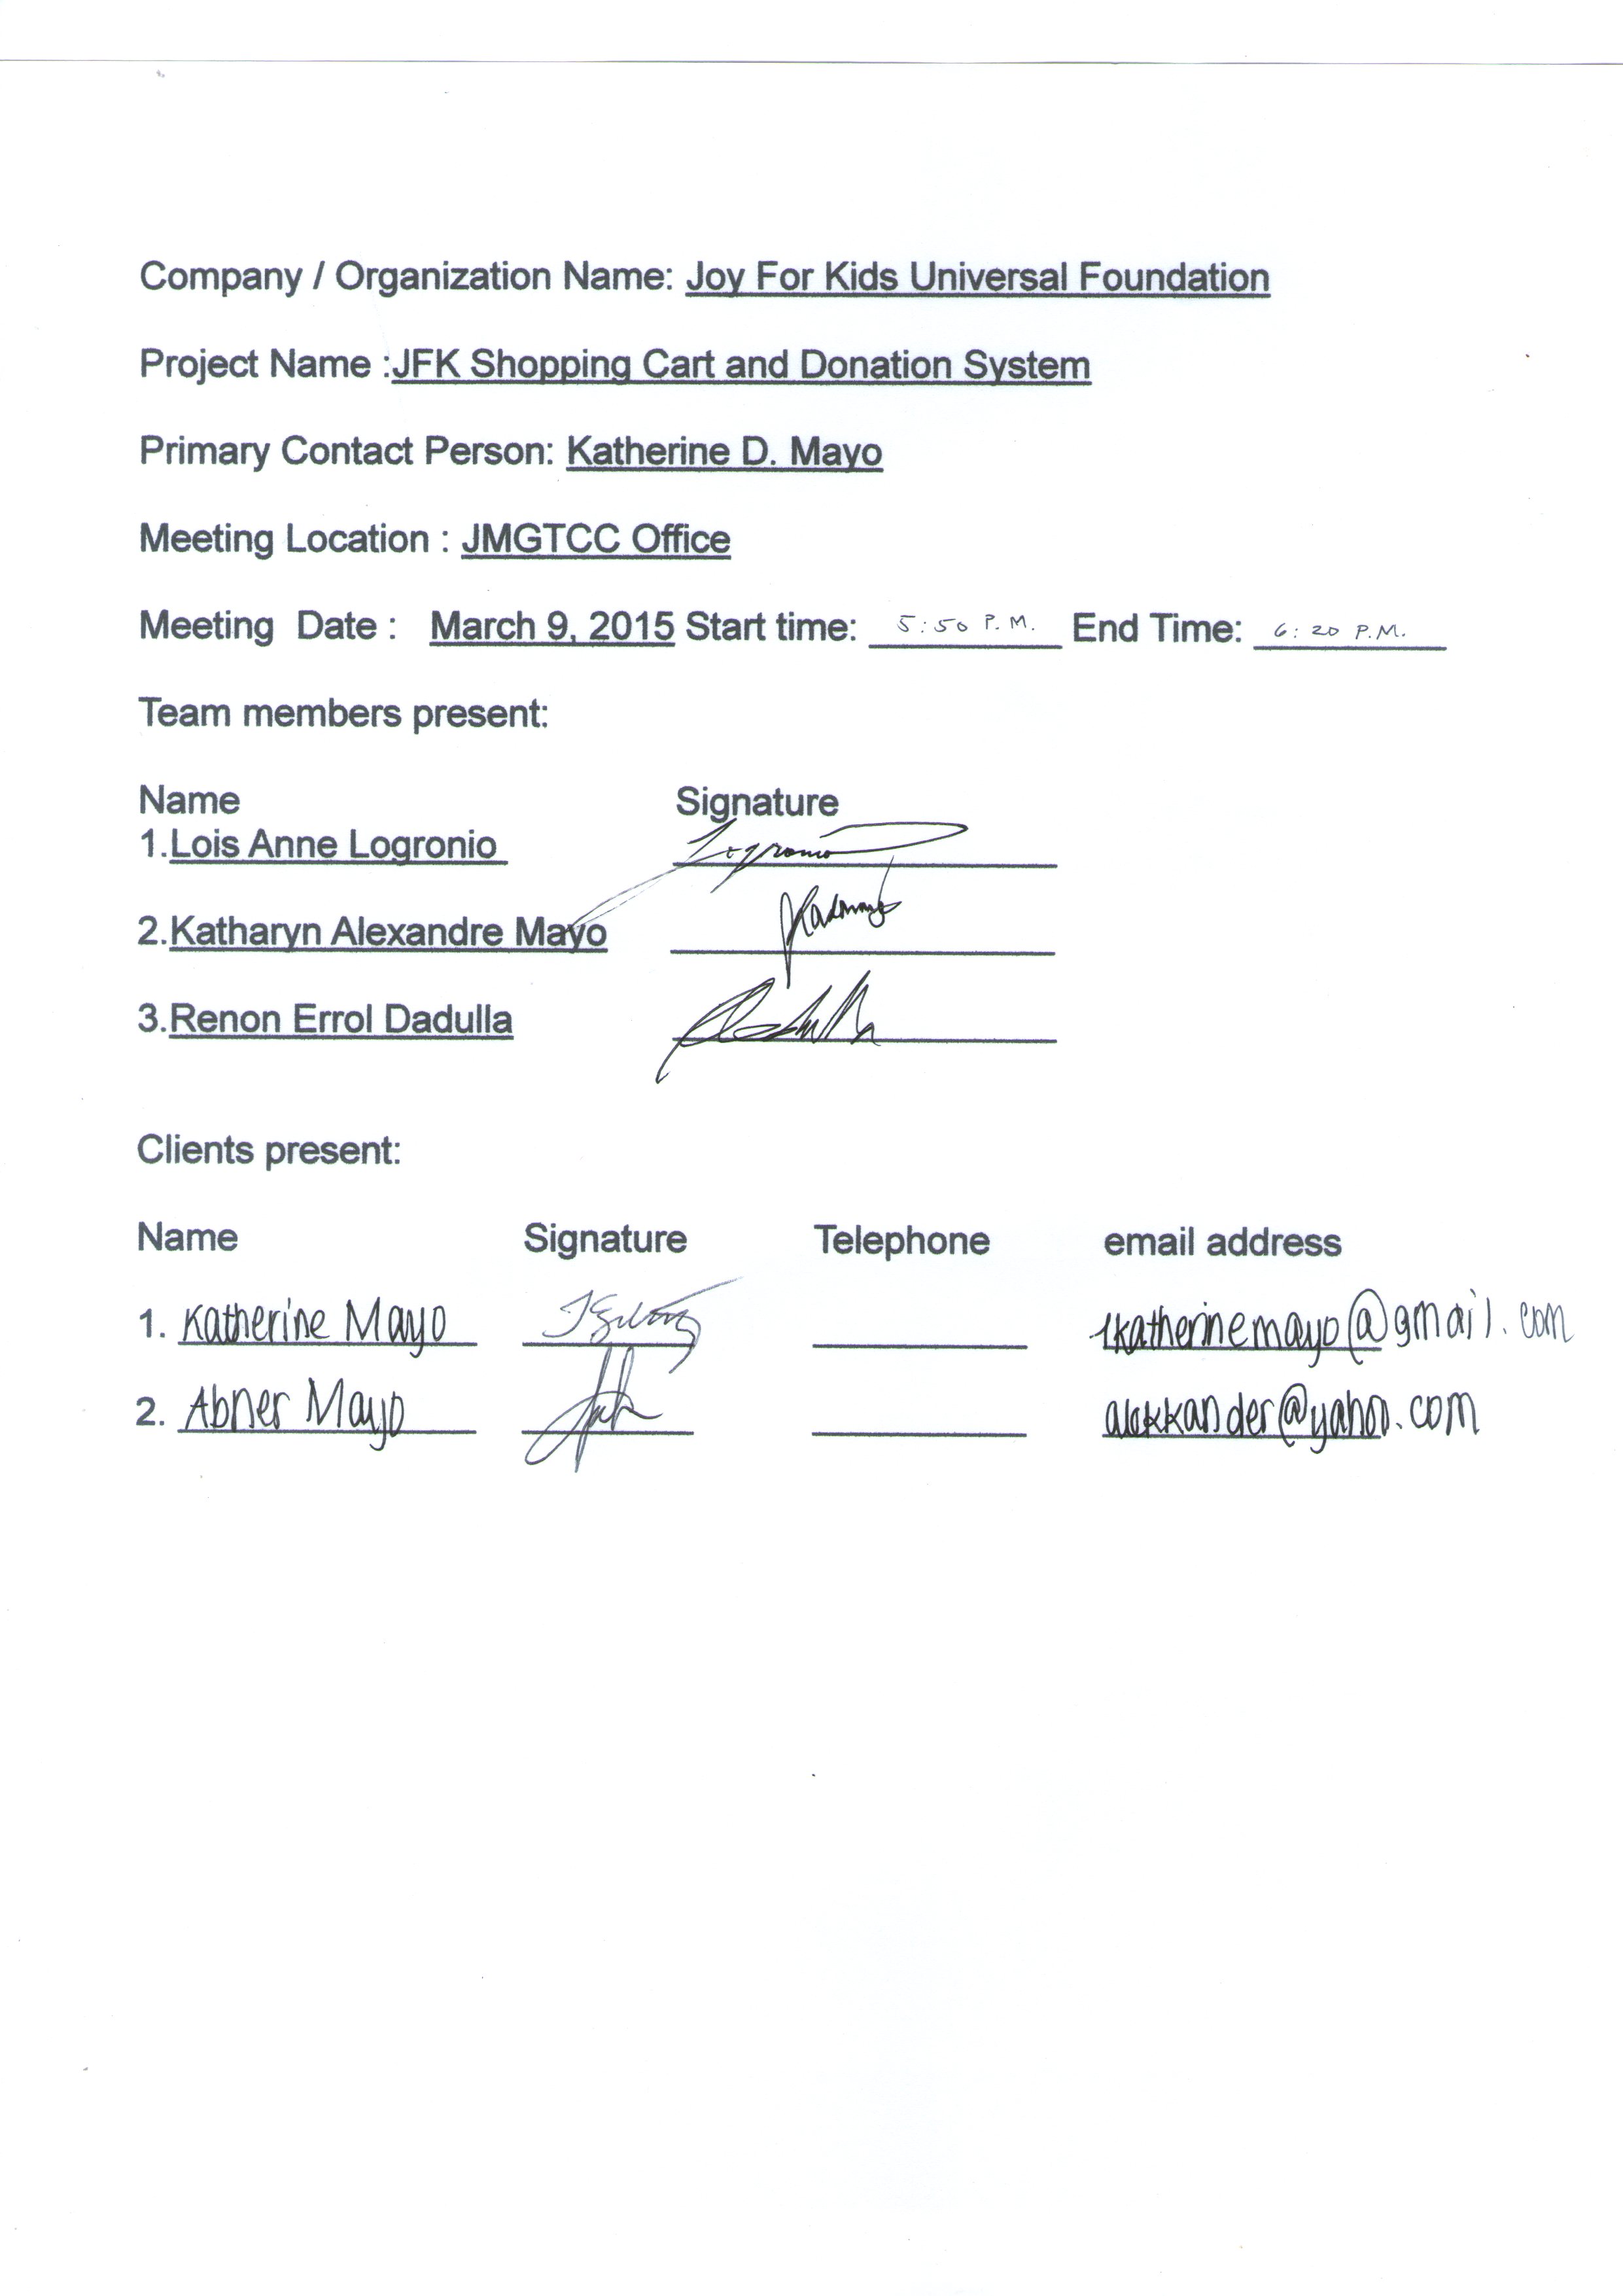 Company / Organization Name: Joy For Kids Universal Foundation
Project Name :JFK Shopping Cart and Donation System
Primary Contact Person: Katherine D. Mayo
Meeting Location : JMGTCC Office
Meeting Date : March 9, 2015 Start time: 5:50 P.M. End Time: 6:20 P.M.
Team members present:
Name Signature
1.Lois Anne Logronio
2.Katharyn Alexandre Mayo
3.Renon Errol Dadulla
Clients present:
Name Signature Telephone email address
1. Katherine Mayo 1katherinemayo@gmail.com
2. Abner Mayo